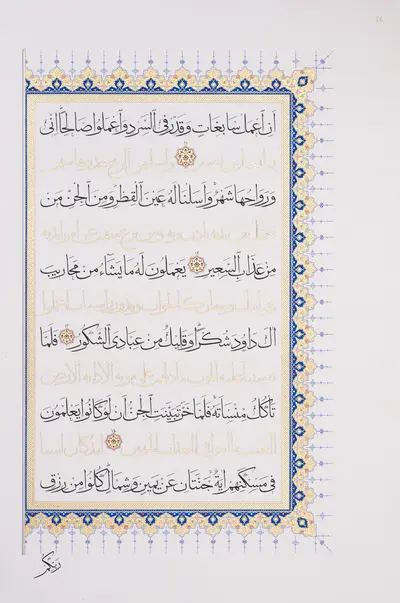 أَنِ ٱعْمَلْ سَابِغَاتٍ وَقَدِّرْ فِي ٱلسَّرْدِ وَٱعْمَلُوا صَالِحًا إِنِّي
بما تعملون بصير ولسليمان الريح غدوها شهر
وَرَوَاحُهَا شَهْرٌ وَأَسَلْنَا لَهُ عَيْنَ ٱلْقِطْرِ وَمِنَ ٱلْجِنِّ مَنْ
يعمل بين يديه بإذن ربه ومن يزغ منهم عن أمرنا نذقه
مِنْ عَذَابِ ٱلسَّعِيرِ يَعْمَلُونَ لَهُ مَا يَشَاءُ مِنْ مَحَارِيبَ
وتماثيل وجفان كالجواب وقدور راسيات اعملوا
آلَ دَاوُدَ شُكْرًا وَقَلِيلٌ مِنْ عِبَادِيَ ٱلشَّكُورُ فَلَمَّا
قضينا عليه الموت ما دلهم على موته إلا دابة الأرض
تَأْكُلُ مِنْسَأَتَهُ فَلَمَّا خَرَّ تَبَيَّنَتِ ٱلْجِنُّ أَنْ لَوْ كَانُوا يَعْلَمُونَ
الغيب ما لبثوا في العذاب المهين لقد كان لسبإ
فِي مَسْكَنِهِمْ آيَةٌ جَنَّتَانِ عَنْ يَمِينٍ وَشِمَالٍ كُلُوا مِنْ رِزْقِ
رَبِّكُمْ